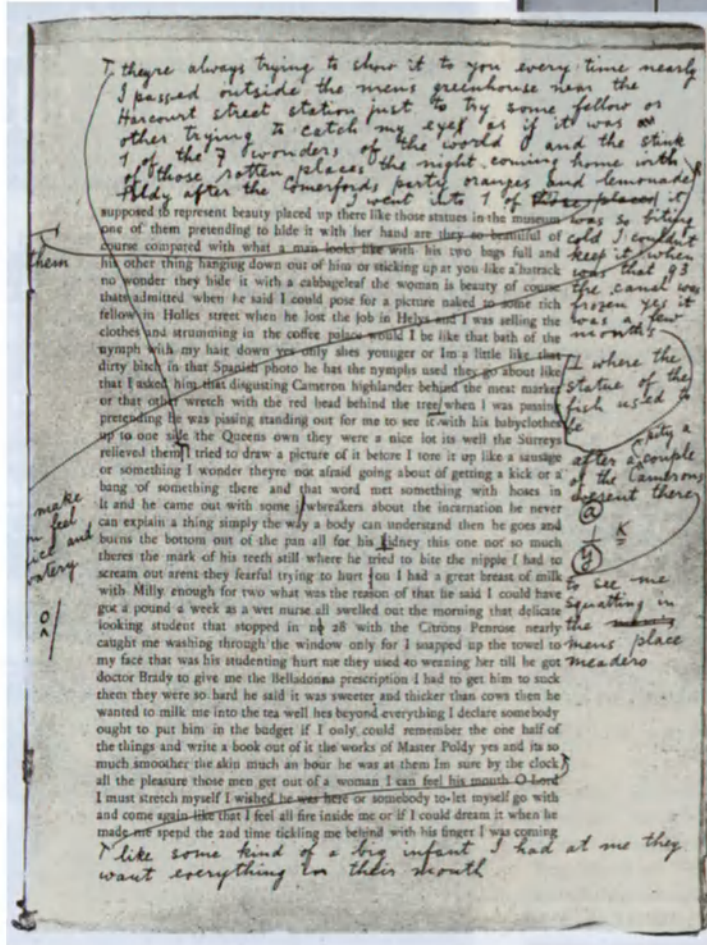 T theyre always trying to show it to you every time nearly
I passed outside the mens greenhouse near the
Harcourt street station just to try some fellow or
other trying to catch my eye as if it was
1 of the 7 wonders of the world O and the stink
of those rotten places the night coming home with
Poldy after the Comerfords party oranges and lemonade
I went into 1 of those places it
was so biting
cold I couldnt
keep it when
was that 93
the canal was
frozen yes it
was a few
months
supposed to represent beauty placed up there like those statues in the museum
one of them pretending to hide it with her hand are they so beautiful of
course compared with what a man looks like with his two bags full and
his other thing hanging down out of him or sticking up at you like a hatrack
no wonder they hide it with a cabbageleaf the woman is beauty of course
thats admitted when he said I could pose for a picture naked to some rich
fellow in Holles street when he lost the job in Helys and I was selling the
clothes and strumming in the coffee palace would I be like that bath of the
nymph with my hair down yes only shes younger or Im a little like that
dirty bitch in that Spanish photo he has the nymphs used they go about like
that I asked him that disgusting Cameron highlander behind the meat market
or that other wretch with the red head behind the tree when I was passing
pretending he was pissing standing out for me to see it with his babyclothes
up to one side the Queens own they were a nice lot its well the Surreys
relieved them I tried to draw a picture of it before I tore it up like a sausage
or something I wonder theyre not afraid going about of getting a kick or a
bang of something there and that word met something with hoses in
it and he came out with some jawbreakers about the incarnation he never
can explain a thing simply the way a body can understand then he goes and
burns the bottom out of the pan all for his kidney this one not so much
theres the mark of his teeth still where he tried to bite the nipple I had to
scream out arent they fearful trying to hurt you I had a great breast of milk
with Milly enough for two what was the reason of that he said I could have
got a pound a week as a wet nurse all swelled out the morning that delicate
looking student that stopped in no 28 with the Citrons Penrose nearly
caught me washing through the window only for I snapped up the towel to
my face that was his studenting hurt me they used to weaning her till he got
doctor Brady to give me the Belladonna prescription I had to get him to suck
them they were so hard he said it was sweeter and thicker than cows then he
wanted to milk me into the tea well hes beyond everything I declare somebody
ought to put him in the budget if I only could remember the one half of
the things and write a book out of it the works of Master Poldy yes and its so
much smoother the skin much an hour he was at them Im sure by the clock
all the pleasure those men get out of a woman I can feel his mouth O Lord
I must stretch myself I wished he was here or somebody to let myself go with
and come again like that I feel all fire inside me or if I could dream it when he
made me spend the 2nd time tickling me behind with his finger I was coming
them
make
feel
and
watery
I where the
statue of the
fish used to
be
pity a
after a couple
of the Camerons
werent there
a
K
y
to see me
squatting in
the
mens place
meadero
T like some kind of a big infant I had at me they
want everything in their mouth